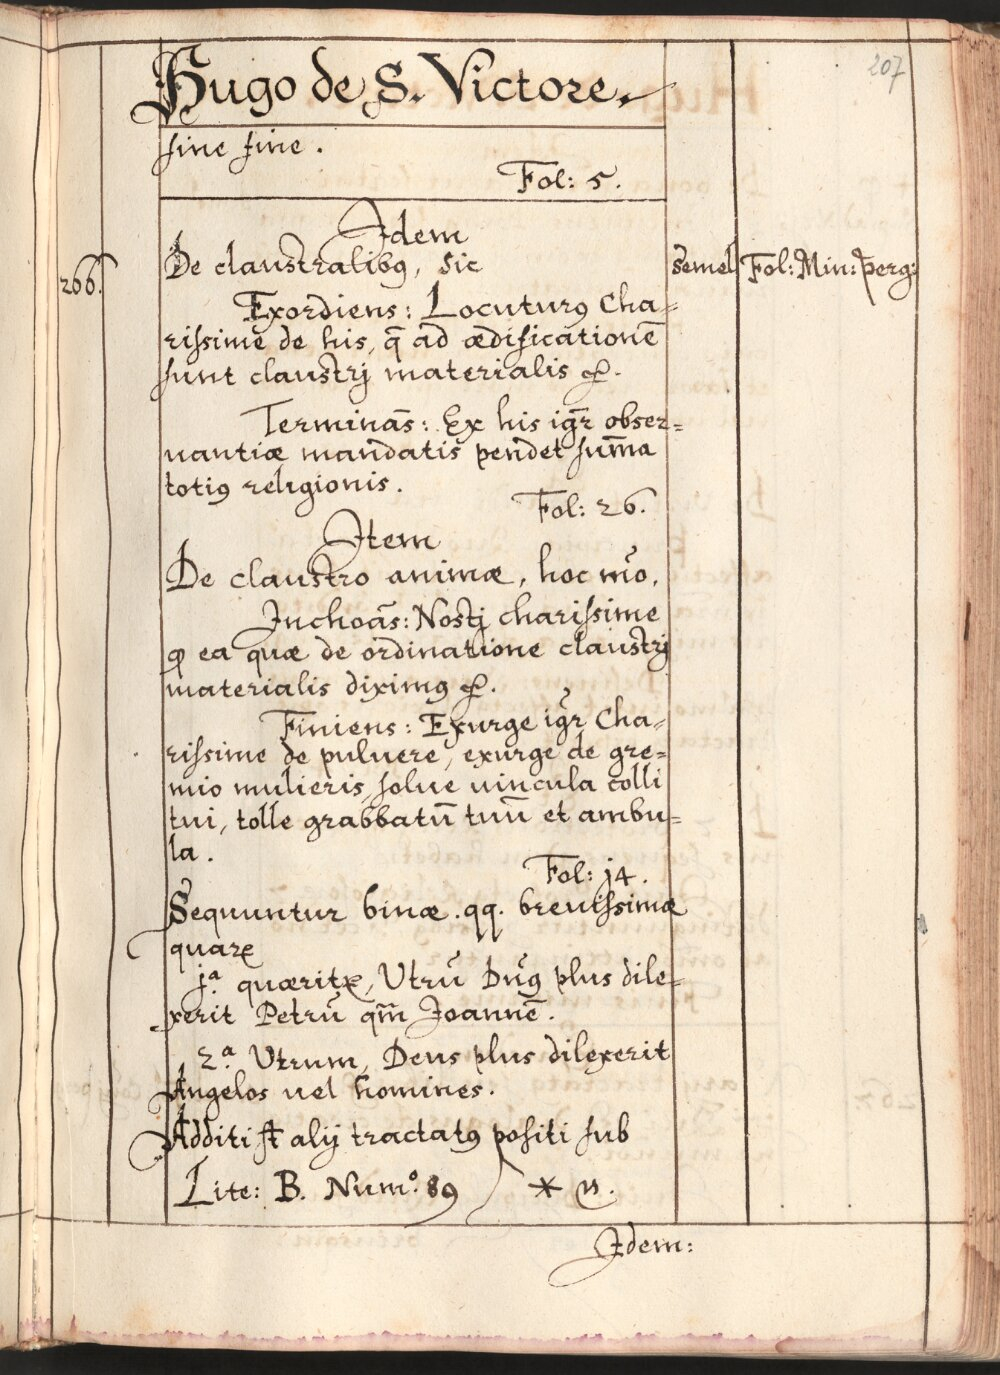 207
Hugo de S. Victore.
sine fine.
Fol: 5.
Idem
266. De claustralibꝰ, sic semel Fol: Min: perg:
Exordiens: Locuturꝰ Cha=
rissime de his, q̄ ad ædificationē
sunt claustrj materialis &.
Terminās: Ex his igr̄ obser=
uantiæ mandatis pendet sum̄a
totiꝰ religionis.
Fol: 26.
Item
De claustro animæ, hoc mō,
Inchoās: Nostj charissime
ꝙ ea quæ de ordinatione claustrj
materialis diximꝰ &.
Finiens: Exurge igr̄ Cha=
rissime de puluere, exurge de gre=
mio mulieris, solue uincula colli
tui, tolle grabbatū tuū et ambu=
la.
Fol: j4.
Sequuntur binæ .qq. breuissimæ
quarꝝ
jª. quæritꝛ, Utrū Dn̄ꝰ plus dile=
xerit Petrū qm̄ Joannē.
2.ª Utrum, Deus plus dilexerit
Angelos uel homines.
Additi st̄ alij tractatꝰ positi sub
Lite: B. Num°. 89 * n.
Idem: